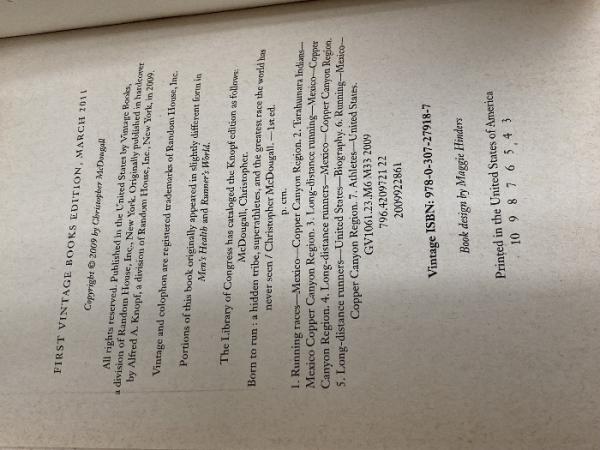 FIRST VINTAGE BOOKS EDITION, MARCH 2011
Copyright © 2009 by Christopher McDougall
All rights reserved. Published in the United States by Vintage Books,
a division of Random House, Inc., New York. Originally published in hardcover
by Alfred A. Knopf, a division of Random House, Inc., New York, in 2009.
Vintage and colophon are registered trademarks of Random House, Inc.
Portions of this book originally appeared in slightly different form in
Men's Health and Runner's World.
The Library of Congress has cataloged the Knopf edition as follows:
McDougall, Christopher.
Born to run : a hidden tribe, superathletes, and the greatest race the world has
never seen / Christopher McDougall. —1st ed.
p. cm.
1. Running races—Mexico—Copper Canyon Region. 2. Tarahumara Indians—
Mexico Copper Canyon Region. 3. Long-distance running—Mexico—Copper
Canyon Region. 4. Long-distance runners—Mexico—Copper Canyon Region.
5. Long-distance runners—United States—Biography. 6. Running—Mexico—
Copper Canyon Region. 7. Athletes—United States.
GV1061.23.M6 M33 2009
796.4209721 22
2009922861
Vintage ISBN: 978-0-307-27918-7
Book design by Maggie Hinders
Printed in the United States of America
10 9 8 7 6 5 4 3